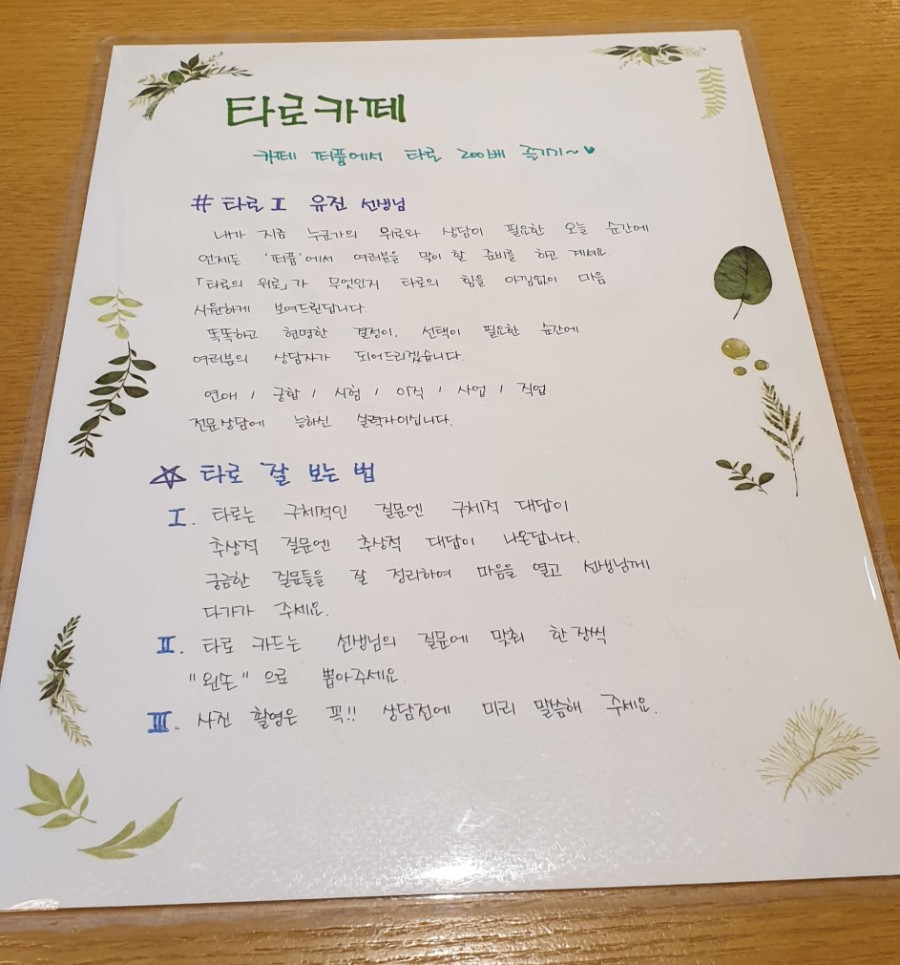 타로카페
카페 퍼퓸에서 타로 200배 즐기기~♥
# 타로 I 유진 선생님
내가 지금 누군가의 위로와 상담이 필요한 오늘 순간에
언제든 '퍼퓸'에서 여러분을 맞이 할 준비를 하고 계셔요.
「타로의 위로」가 무엇인지 타로의 힘을 아낌없이 마음
시원하게 보여드린답니다.
똑똑하고 현명한 결정이, 선택이 필요한 순간에
여러분의 상담자가 되어드리겠습니다.
연애 / 궁합 / 시험 / 이직 / 사업 / 직업
전문상담에 능하신 실력자이십니다.
☆ 타로 잘 보는 법
I. 타로는 구체적인 질문엔 구체적 대답이
추상적 질문엔 추상적 대답이 나온답니다.
궁금한 질문들을 잘 정리하여 마음을 열고 선생님께
다가가 주세요.
II. 타로 카드는 선생님의 질문에 맞춰 한장씩
"왼손" 으로 뽑아주세요
III. 사진 촬영은 꼭!! 상담전에 미리 말씀해 주세요.